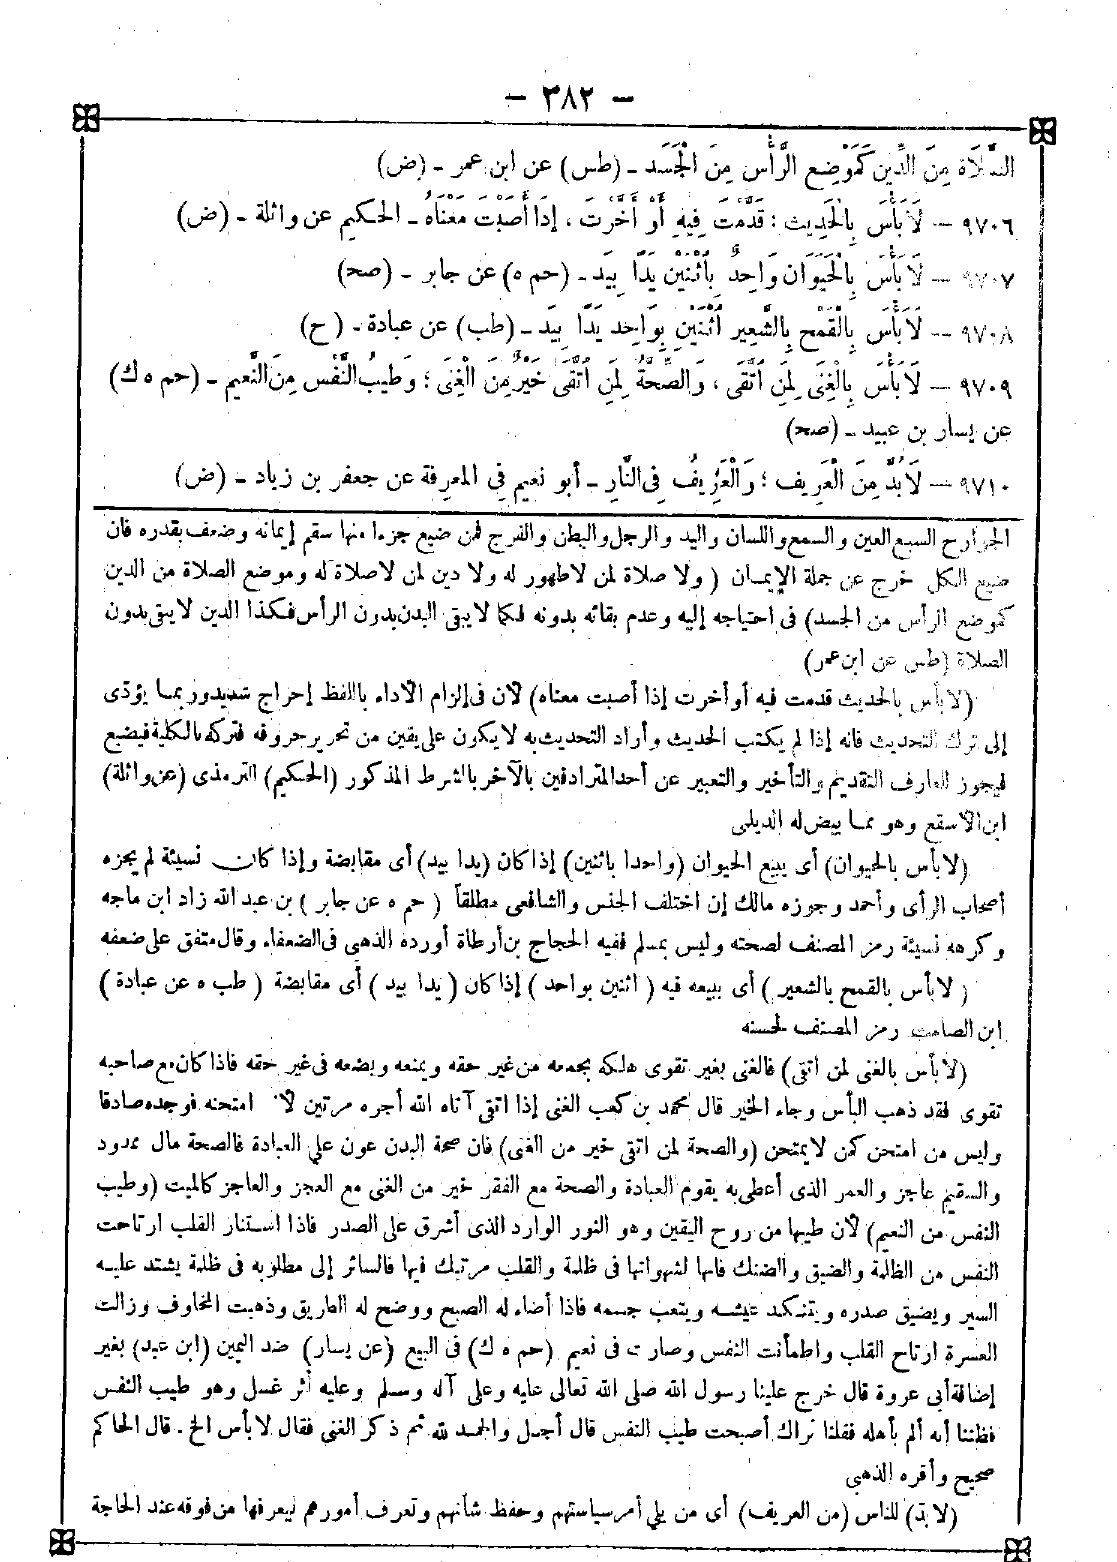 — ٣٨٢ —
الصَّلَاة مِنَ الدِّين كَمَوْضِع الرَّأْس مِنَ الْجَسَد ـ (طس) عن ابن عمر ـ (ض)
٩٧٠٦ — لَا بَأْسَ بِالْحَدِيث : قَدَّمْتَ فِيهِ أَوْ أَخَّرْتَ ، إِذَا أَصَبْتَ مَعْنَاهُ ـ الحكيم عن واثلة ـ (ض)
٩٧٠٧ — لَا بَأْسَ بِالْحَيَوَان وَاحِدٌ بِاثْنَيْن يَدًا بِيَد ـ (حم ه) عن جابر ـ (صح)
٩٧٠٨ — لَا بَأْسَ بِالْقَمْحِ بِالشَّعِير اثْنَيْنِ بِوَاحِد يَدًا بِيَد ـ (طب) عن عبادة ـ (ح)
٩٧٠٩ — لَا بَأْسَ بِالْغِنَى لِمَنِ اتَّقَى ، وَالصِّحَّةُ لِمَنِ اتَّقَى خَيْرٌ مِنَ الْغِنَى ؛ وَطِيبُ النَّفْس مِنَ النَّعِيم ـ (حم ه ك)
عن يسار بن عبيد ـ (صح)
٩٧١٠ — لَا بُدَّ مِنَ الْعَرِيف ؛ وَالْعَرِيفُ فِى النَّارِ ـ أبو نعيم فى المعرفة عن جعفر بن زياد ـ (ض)
الجوارح السبع العين والسمع واللسان واليد والرجل والبطن والفرج فمن ضيع جزءا منها سقم إيمانه وضعف بقدره فان
ضيع الكل خرج عن جملة الإيمان (ولا صلاة لمن لاطهور له ولا دين لمن لاصلاة له وموضع الصلاة من الدين
كموضع الرأس من الجسد) فى احتياجه إليه وعدم بقائه بدونه فكما لايبقى البدن بدون الرأس فكذا الدين لايبقى بدون
الصلاة (طس عن ابن عمر)
(لابأس بالحديث قدمت فيه أو أخرت إذا أصبت معناه) لأن فى إلزام الأداء باللفظ إحراج شديد وربما يؤدى
إلى ترك التحديث فانه إذا لم يكتب الحديث وأراد التحديث به لايكون على يقين من تحرير حروفه فتركه بالكلية فيضيع
فيجوز للعارف التقديم والتأخير والتعبير عن أحد المترادفين بالآخر بالشرط المذكور (الحكيم) الترمذى (عن واثلة)
ابن الأسقع وهو مما بيض له الديلمى
(لابأس بالحيوان) أى ببيع الحيوان (واحدا باثنين) إذا كان (يدا بيد) أى مقابضة وإذا كان نسيئة لم يجزه
أصحاب الرأى وأحمد وجوزه مالك إن اختلف الجنس والشافعى مطلقاً (حم ه عن جابر) بن عبد الله زاد ابن ماجه
وكرهه نسيئة رمز المصنف لصحته وليس بمسلم ففيه الحجاج بن أرطاة أورده الذهبى فى الضعفاء وقال متفق على ضعفه
(لابأس بالقمح بالشعير) أى ببيعه فيه (اثنين بواحد) إذا كان (يدا بيد) أى مقابضة (طب ه عن عبادة)
ابن الصامت رمز المصنف لحسنه
(لابأس بالغنى لمن اتقى) فالغنى بغير تقوى هلكه يجمعه من غير حقه ويمنعه ويضعه فى غير حقه فاذا كان مع صاحبه
تقوى فقد ذهب البأس وجاء الخير قال محمد بن كعب الغنى إذا اتقى آتاه الله أجره مرتين لأنه امتحنه فوجده صادقا
وليس من امتحن كمن لايمتحن (والصحة لمن اتقى خير من الغنى) فان صحة البدن عون على العبادة فالصحة مال ممدود
والسقيم عاجز والعمر الذى أعطى به يقوم العبادة والصحة مع الفقر خير من الغنى مع العجز والعاجز كالميت (وطيب
النفس من النعيم) لأن طيبها من روح اليقين وهو النور الوارد الذى أشرق على الصدر فاذا استنار القلب ارتاحت
النفس من الظلمة والضيق والضنك فانها لشهواتها فى ظلمة والقلب مرتبك فيها فالسائر إلى مطلوبه فى ظلمة يشتد عليه
السير ويضيق صدره ويتنكد عيشه ويتعب جسمه فاذا أضاء له الصبح ووضح له الطريق وذهبت المخاوف وزالت
العسرة ارتاح القلب واطمأنت النفس وصارت فى نعيم (حم ه ك) فى البيع (عن يسار) ضد اليمين (ابن عبد) بغير
إضافة أبى عروة قال خرج علينا رسول الله صلى الله تعالى عليه وعلى آله وسلم وعليه أثر غسل وهو طيب النفس
فظننا أنه ألم بأهله فقلنا نراك أصبحت طيب النفس قال أجل والحمد لله ثم ذكر الغنى فقال لابأس الخ . قال الحاكم
صحيح وأقره الذهبى
(لابد) للناس (من العريف) أى من يلي أمر سياستهم وحفظ شأنهم وتعرف أمورهم ليعرفها من فوقه عند الحاجة